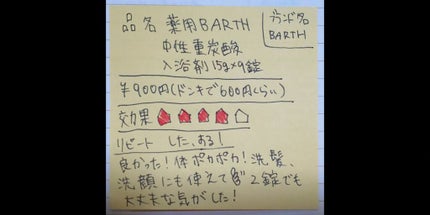 品名 薬用BARTH
中性重炭酸
入浴剤 15g×9錠
ブランド名
BARTH
¥900円(ドンキで600円くらい)
効果
リピート した、ある!
良かった!体ポカポカ!洗髪、
洗顔にも使えて 2錠でも
大丈夫な気がした!